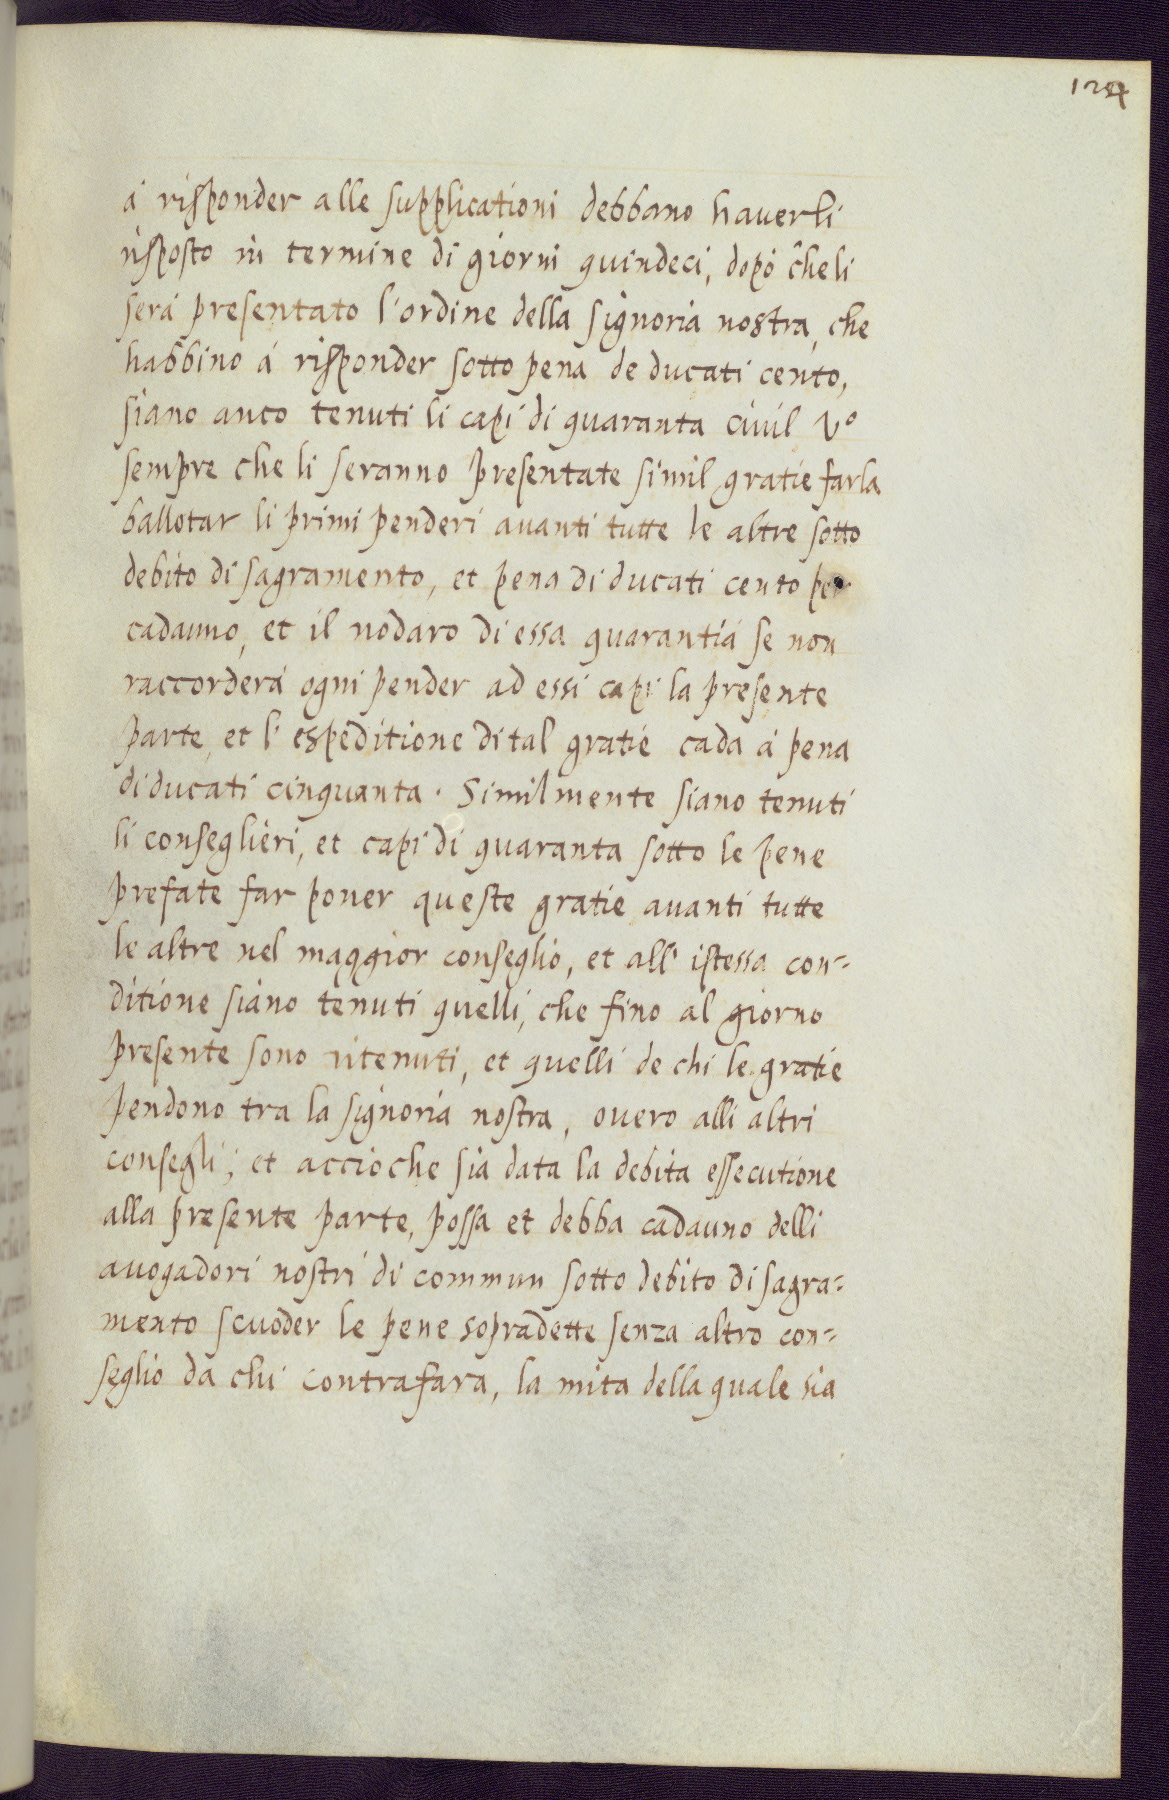 á risponder alle supplicationi debbano hauerli
risposto in termine di giorni quindeci, dopó che li
será presentato l'ordine della signoria nostra, che
habbino á risponder sotto pena de ducati cento,
siano anco tenuti li capi di quaranta ciuil Vº
sempre che li seranno presentate simil gratie farla
ballotar li primi penderi auanti tutte le altre sotto
debito di sagramento, et pena di ducati cento per
cadauno, et il nodaro di essa quarantiá se non
raccorderá ogni pender ad essi capi la presente
parte, et l'espeditione di tal gratie cada á pena
di ducati cinquanta. Similmente siano tenuti
li conseglieri, et capi di quaranta sotto le pene
prefate far poner queste gratie auanti tutte
le altre nel maggior conseglio, et all'istessa con-
ditione siano tenuti quelli, che fino al giorno
presente sono ritenuti, et quelli de chi le gratie
pendono tra la signoria nostra, ouero alli altri
consegli; et accioche sia data la debita essecutione
alla presente parte, possa et debba cadauno delli
auogadori nostri di commun sotto debito di sagra-
mento scuoder le pene sopradette senza altro con-
seglio da chi contrafara, la mita della quale sia